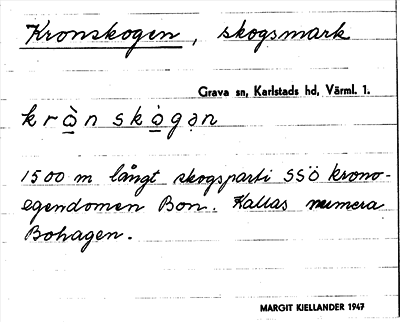 Kronskogen, skogsmark
Grava sn, Karlstads hd, Värml. l.
krò̲n skò̲gən
1500 m långt skogsparti SSÖ krono-
egendomen Bon. Kallas numera
Bohagen.
MARGIT KJELLANDER 1947